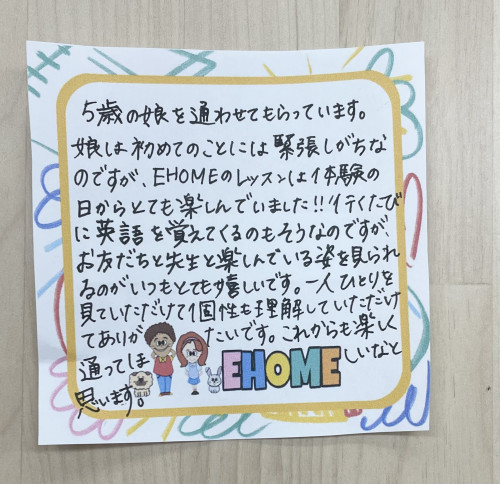 5歳の娘を通わせてもらっています。
娘は初めてのことには緊張しがちな
のですが、EHOMEのレッスンは体験の
日からとても楽しんでいました!!行くたび
に英語を覚えてくるのもそうなのですが、
お友だちと先生と楽しんでいる姿を見られ
るのがいつもとても嬉しいです。一人ひとりを
見ていただけて個性も理解していただけ
てありがたいです。これからも楽しく
通ってほしいなと
思います。
EHOME